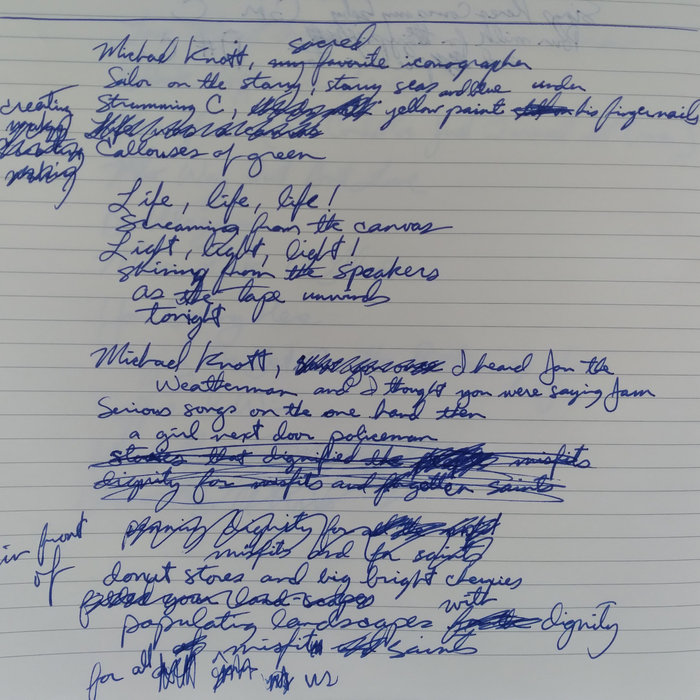 sacred
Michael Knott, my favorite iconographer
Sailor on the starry, starry seas and blue under
Strumming C, yellow paint his fingernails
creating
making
Callouses of green
Life, life, life!
Screaming from the canvas
Light, light, light!
shining from the speakers
as the tape unwinds
tonight
Michael Knott, I heard Jan the
Weatherman and I thought you were saying Jam
Serious songs on the one hand then
a girl next door policeman
stories that dignified the misfits
dignity for misfits and forgotten saints
dignity for
misfits and for saints
in front
of
donut stores and big bright cherries
your land-scapes
with
populating landscapes dignity
misfit saints
for all us